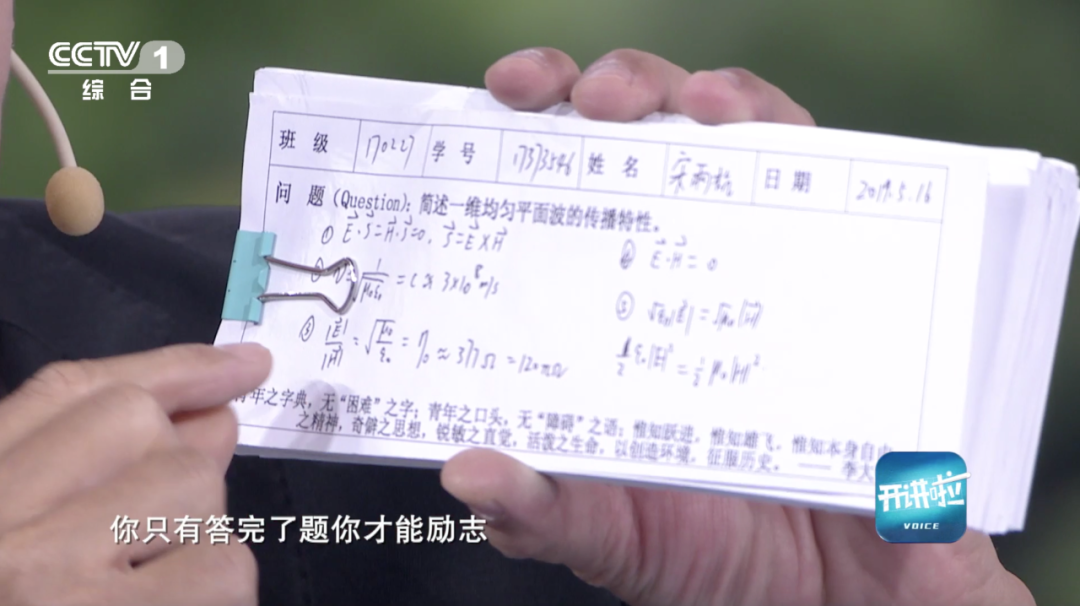 CCTV 1
综合
班级 170227 学号 17373546 姓名 宋雨 日期 2019.5.16
问题(Question):简述一维均匀平面波的传播特性。
① E·S=H·S=0, S=E×H
④ E·H=0
=1/√μ₀ε₀=C≈3×10⁸m/s
⑤ √ε₀|E|=√μ₀|H|
③ |E|/|H|=√μ₀/ε₀=η₀≈377Ω=120πΩ
1/2 ε₀|E|²=1/2 μ₀|H|²
年之字典,无“困难”之字;青年之口头,无“障碍”之语;惟知跃进,惟知雄飞,惟知本身自由
之精神,奇僻之思想,锐敏之直觉,活泼之生命,以创造环境,征服历史。——李大
开讲啦
VOICE
你只有答完了题你才能励志